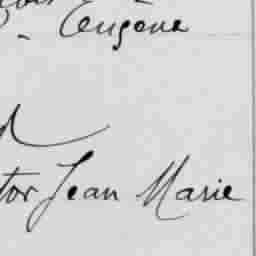 Eugène
tor Jean Marie